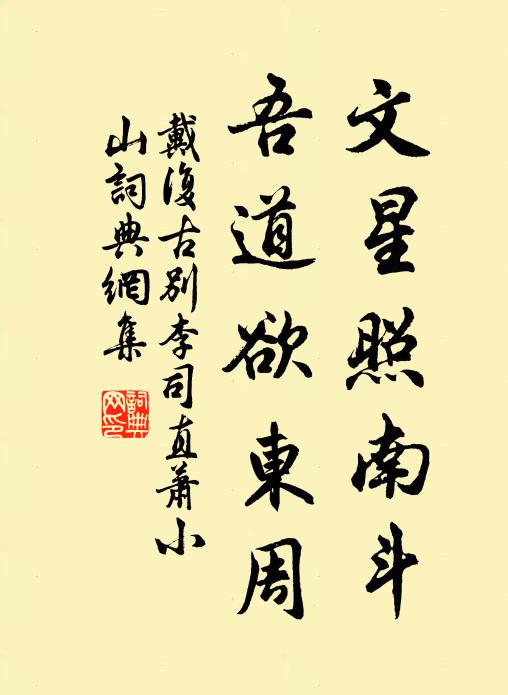 文星照南斗
吾道欲東周
戴復古別李司直蕭小
山詞典網集
詞典
网印